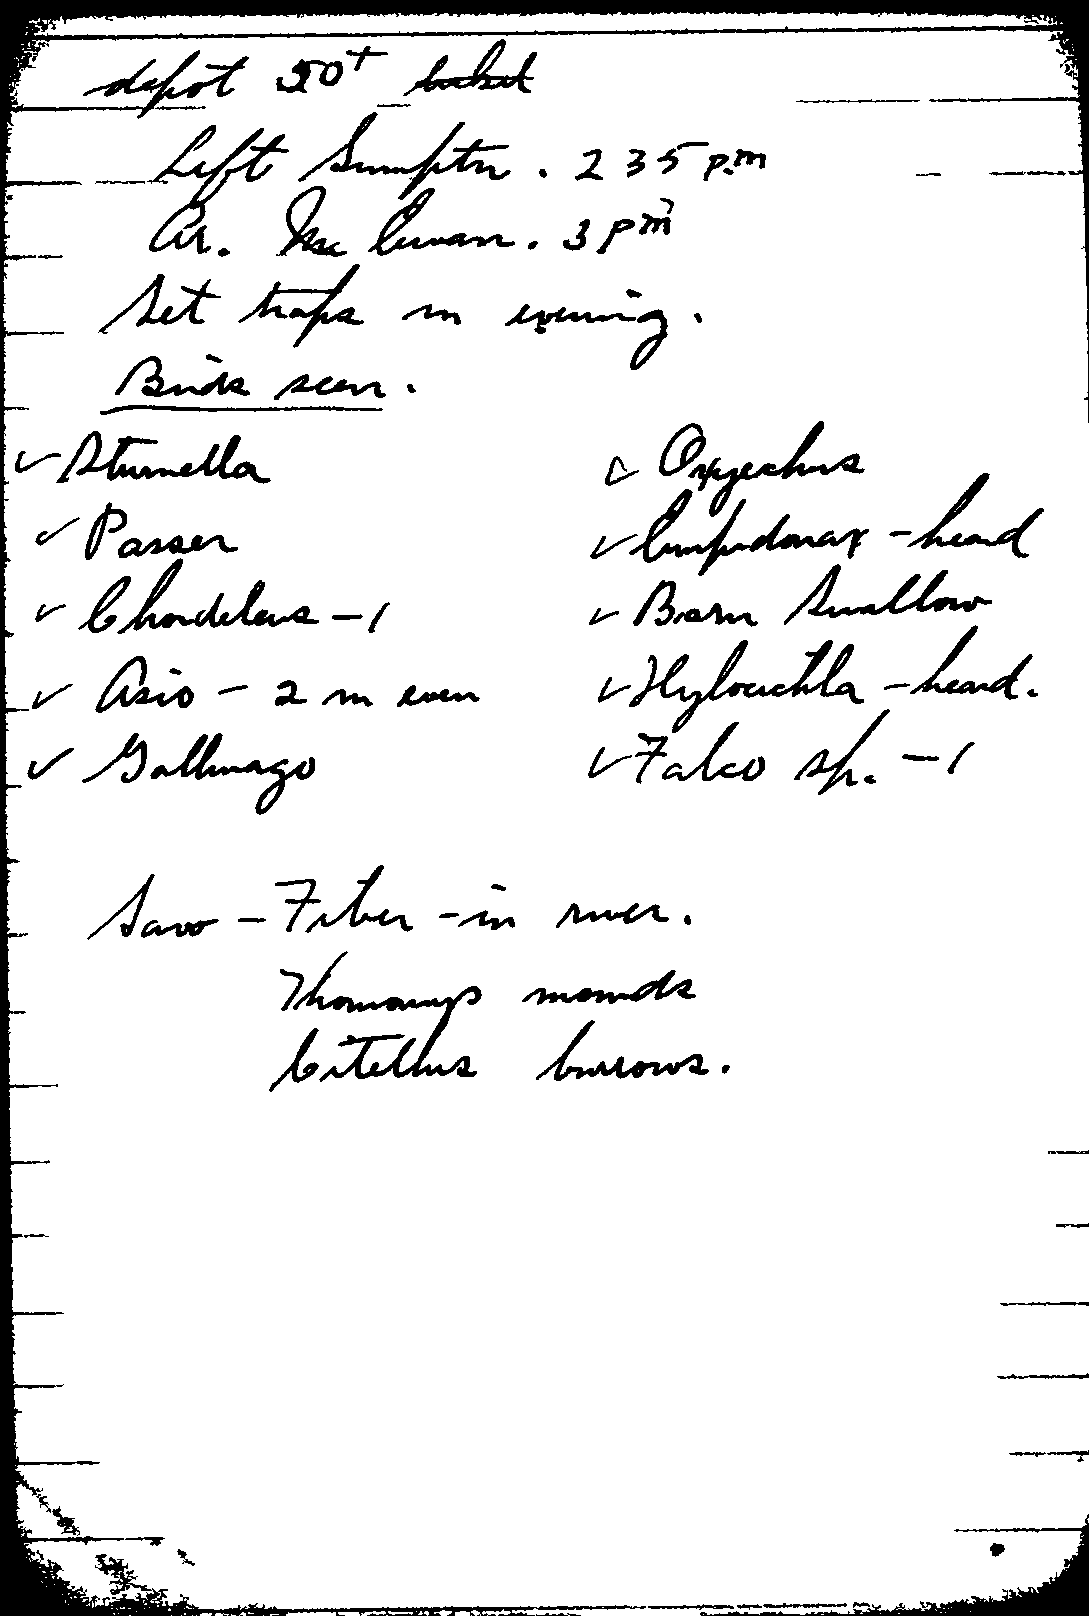 depot 50+ ticket
Left Sumpter. 2 35 p.m
Ar. McEwan. 3 pm
Set traps in evening.
Birds seen.
✓ Sturnella
✓ Passer
✓ Chordeleus - 1
✓ Asio - 2 in even
✓ Gallinago
✓ Oxyechus
✓ Empidonax - heard
✓ Barn Swallow
✓ Hylocichla - heard.
✓ Falco sp. - 1
Saw - Fiber - in river.
Thomomys mounds
Citellus burrows.